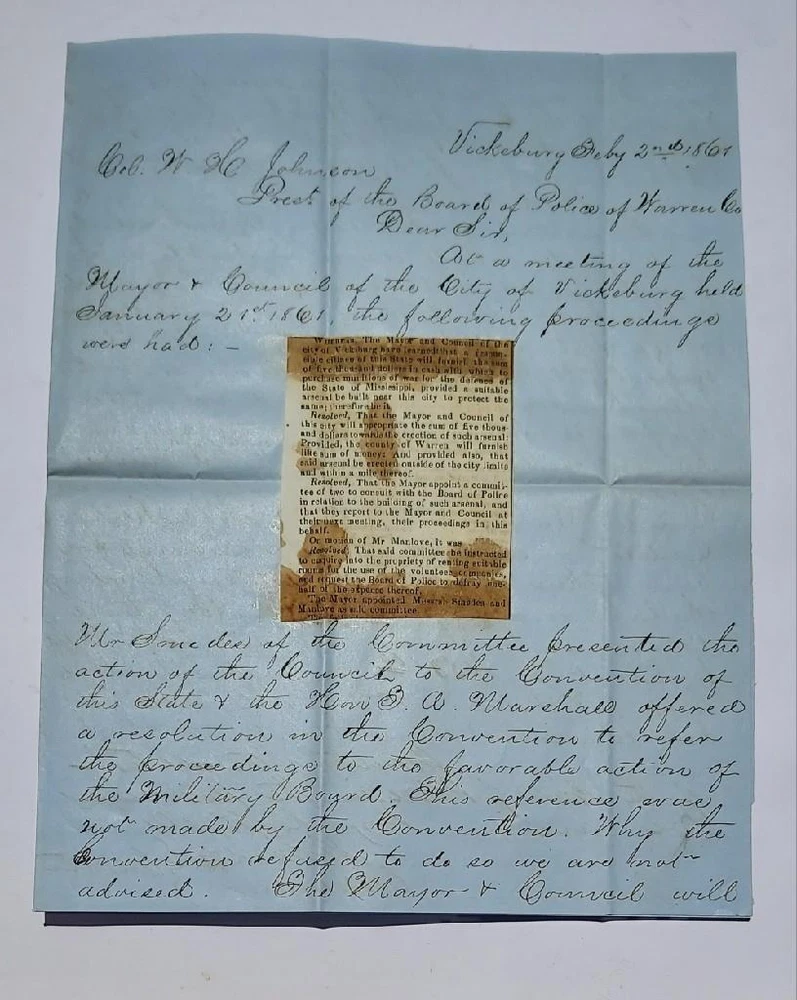 Vicksburg Feby 2nd 1861
Col. W H Johnson
Prest of the Board of Police of Warren Co
Dear Sir,
At a meeting of the
Mayor & Council of the City of Vicksburg held
January 21st 1861, the following proceedings
were had: -
Whereas, The Mayor and Council of the
city of Vicksburg have learned that a
citizen of this State will furnish the sum
of five thousand dollars in cash with which to
purchase munitions of war for the defense of
the State of Mississippi, provided a suitable
arsenal be built near this city to protect the
same; therefore be it
Resolved, That the Mayor and Council of
this city will appropriate the sum of five thous-
and dollars towards the erection of such arsenal:
Provided, the county of Warren will furnish
like sum of money: And provided also, that
said arsenal be erected outside of the city limits
and within a mile thereof.
Resolved, That the Mayor appoint a commit-
tee of two to consult with the Board of Police
in relation to the building of such arsenal, and
that they report to the Mayor and Council at
their next meeting, their proceedings in this
behalf.
On motion of Mr Manlove, it was
Resolved, That said committee be instructed
to enquire into the propriety of renting suitable
rooms for the use of the volunteer companies,
and request the Board of Police to defray one-
half of the expense thereof.
The Mayor appointed Messrs. and
Manlove as said committee.
Mr Smedes of the Committee presented the
action of the Council to the Convention of
this State & the Hon T. A. Marshall offered
a resolution in the Convention to refer
the proceedings to the favorable action of
the Military Board. This reference was
not made by the Convention. Why the
Convention refused to do so we are not
advised. The Mayor & Council will